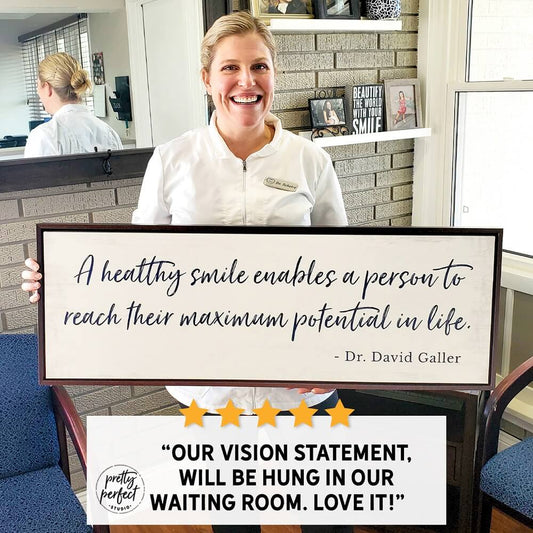 BEAUTIFY
THE WORLD
SMILE
A healthy smile enables a person to
reach their maximum potential in life.
- Dr. David Galler
“OUR VISION STATEMENT,
WILL BE HUNG IN OUR
WAITING ROOM. LOVE IT!”
pretty
perfect
STUDIO